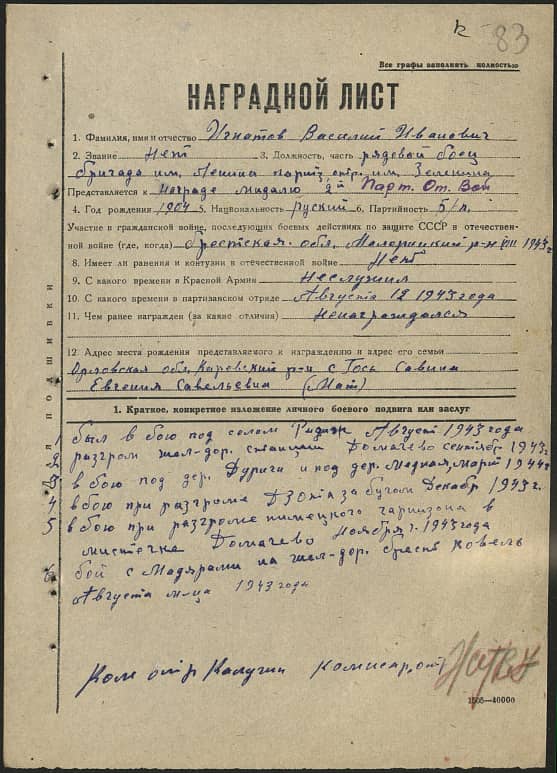 к 83
Все графы заполнять полностью
НАГРАДНОЙ ЛИСТ
1. Фамилия, имя и отчество Игнатов Василий Иванович
2. Звание Нет 3. Должность, часть рядовой боец
бригада им. Ленина партиз. отр. им.
Представляется к Награде мидалю 2й Парт. От. Вой
4. Год рождения 1904 5. Национальность Руский 6. Партийность б/п.
Участие в гражданской войне, последующих боевых действиях по защите СССР в отечествен-
ной войне (где, когда) Брестская обл. Малорицкий р-н VIII 1943 г
8. Имеет ли ранения и контузии в отечественной войне Нет
9. С какого времени в Красной Армии Неслужил
10. С какого времени в партизанском отряде Августа 12 1943 года
11. Чем ранее награжден (за какие отличия) Ненаграждался
12 Адрес места рождения представляемого к награждению и адрес его семьи
Орловская обл. р-н с
Евгения Савельевна (Мат)
Для подшивки
1. Краткое, конкретное изложение личного боевого подвига или заслуг
1 был в бою под селом Август 1943 года
2 разгром жел-дор. станции Домачево сентябр 1943 г
3 в бою под дер. Дуричи и под дер. Медная, март 1944 г
4 в бою при разгроме ДЗОТа за Бугом Декабр 1943 г.
5 в бою при разгроме нимецкого гарнизона в
мистечке Домачево Ноября 1943 года
6 бой с Мадярами на жел-дор. брест Ковель
Августа м-ца 1943 года
Ком отр Комиссар, отр
1505—40000